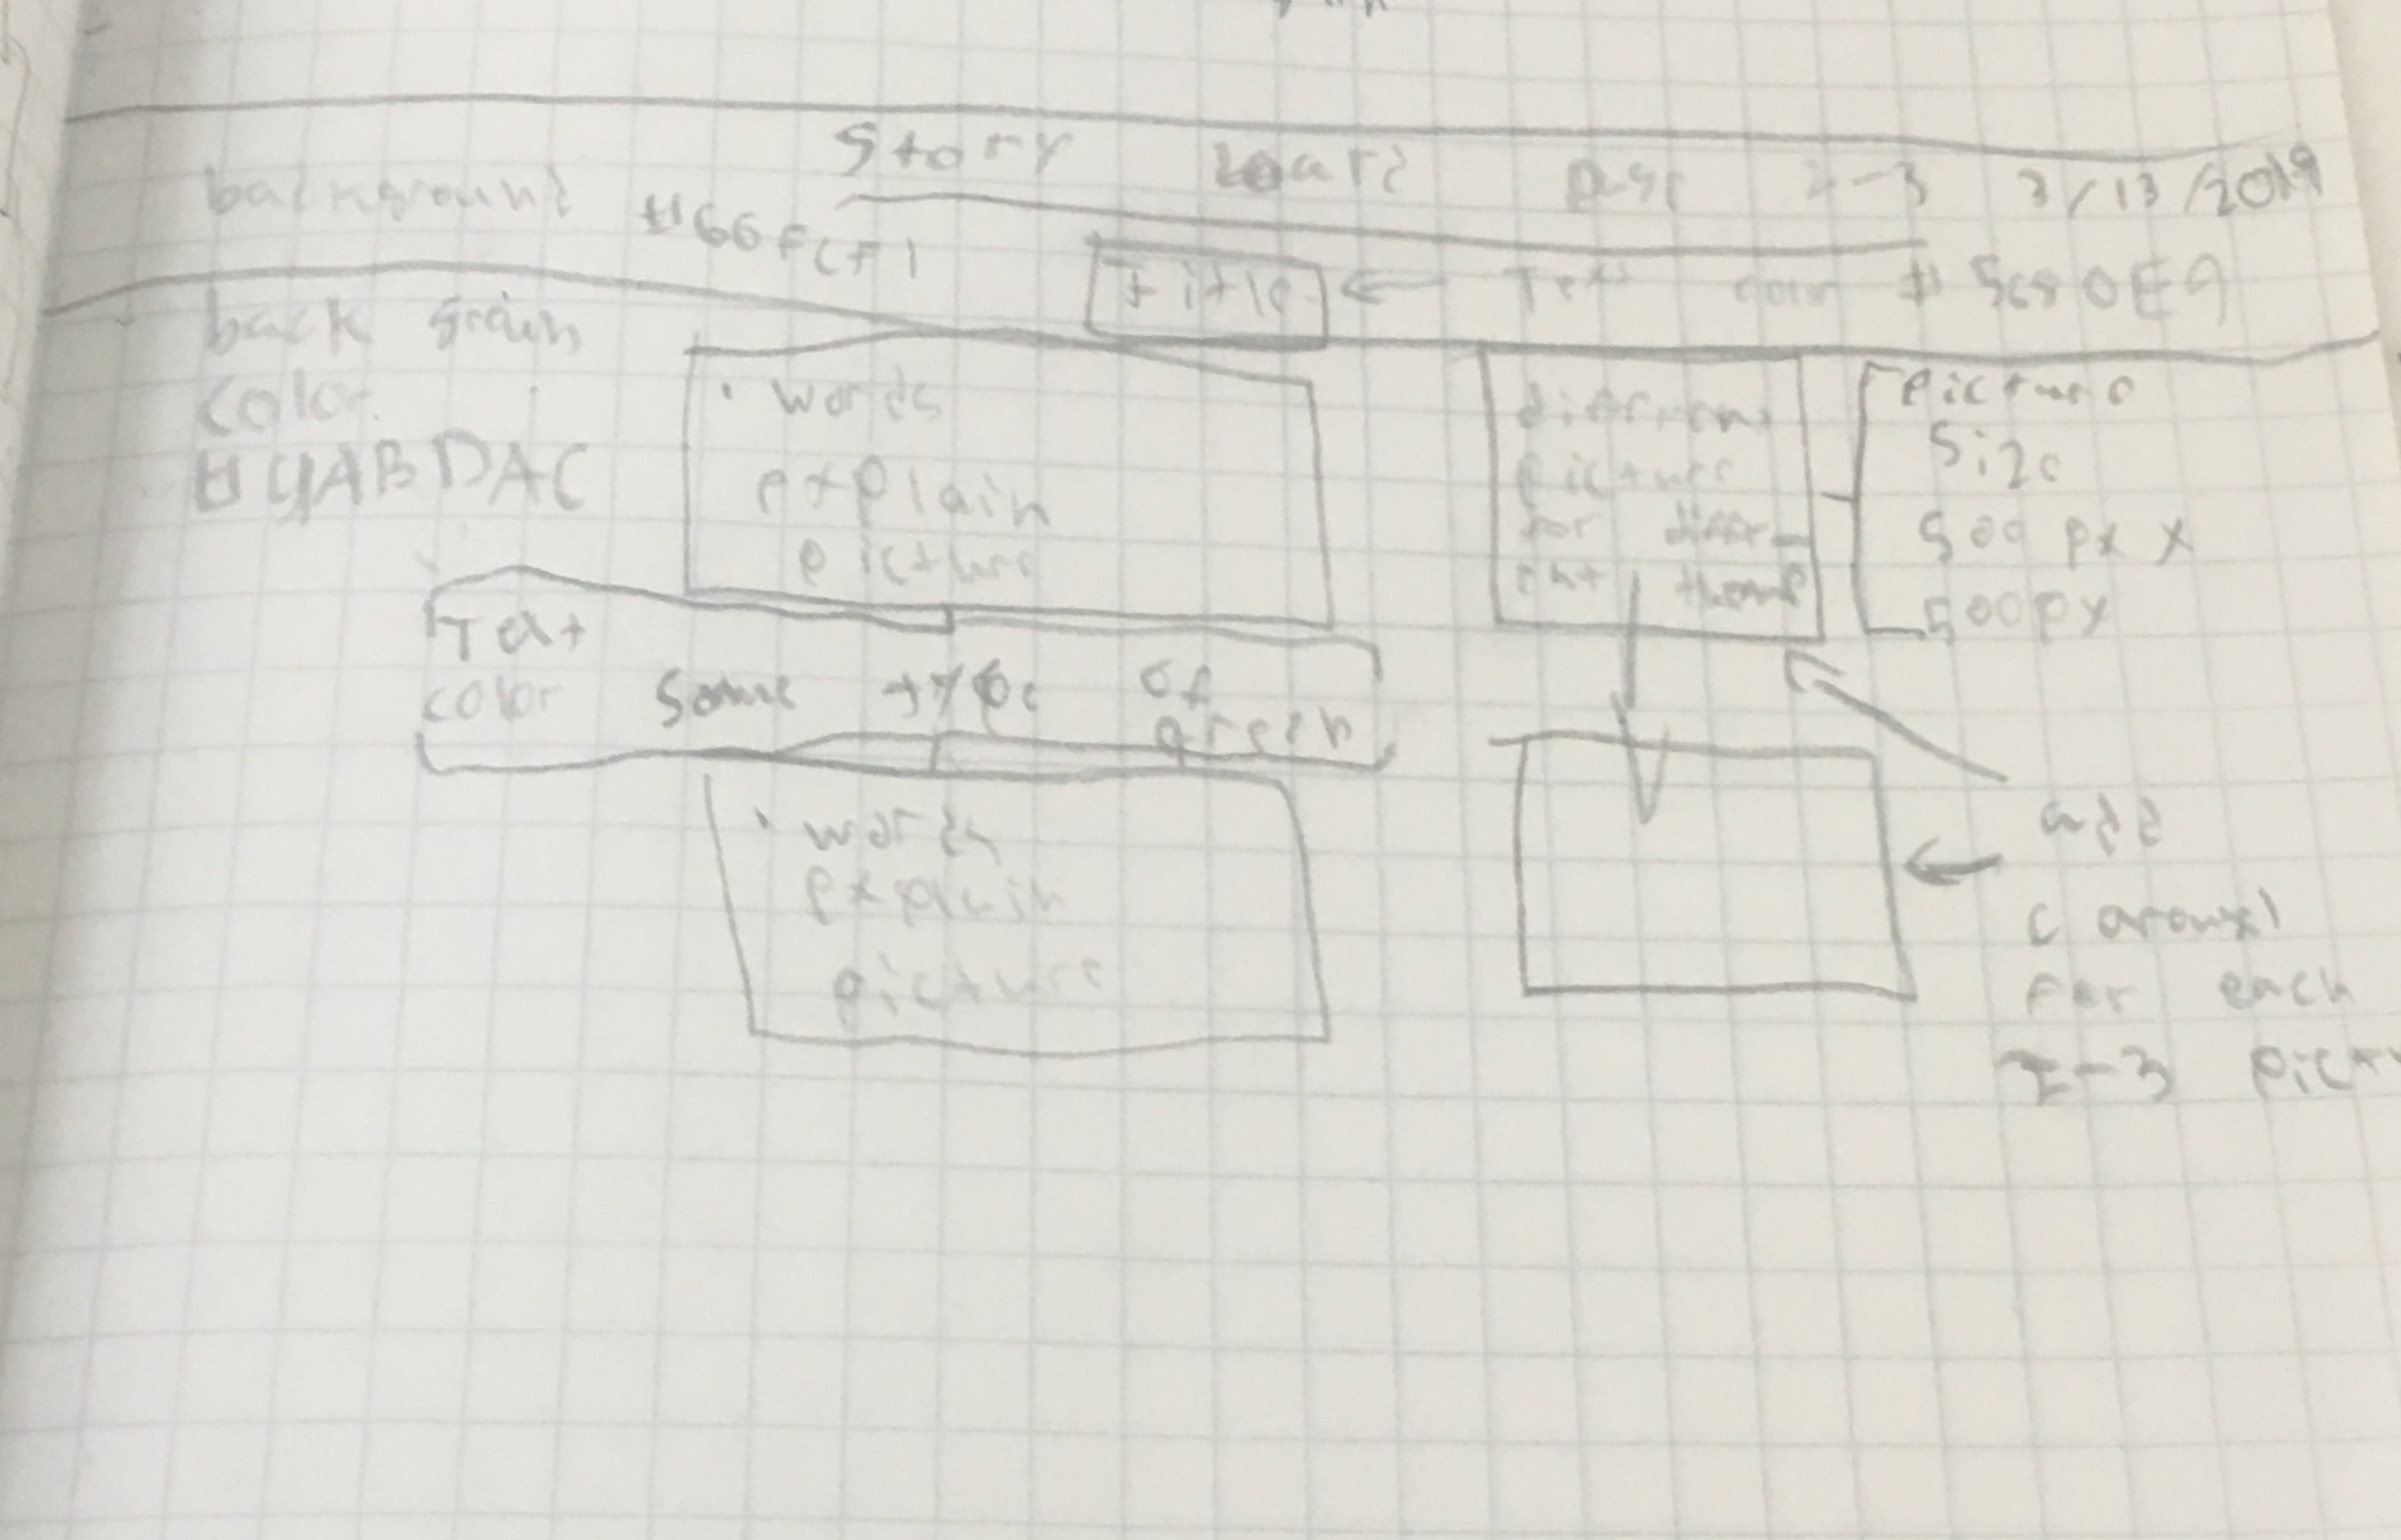 Story board page 2-3 3/13/2019
background #66FCF1
title ← Text color #5680E9
back groun
color
#4ABDAC
• words
explain
picture
different
picture
for differ-
ent theme
picture
size
500 px x
500px
Text
color some type of
green
• words
explain
picture
add
carousel
for each
2-3